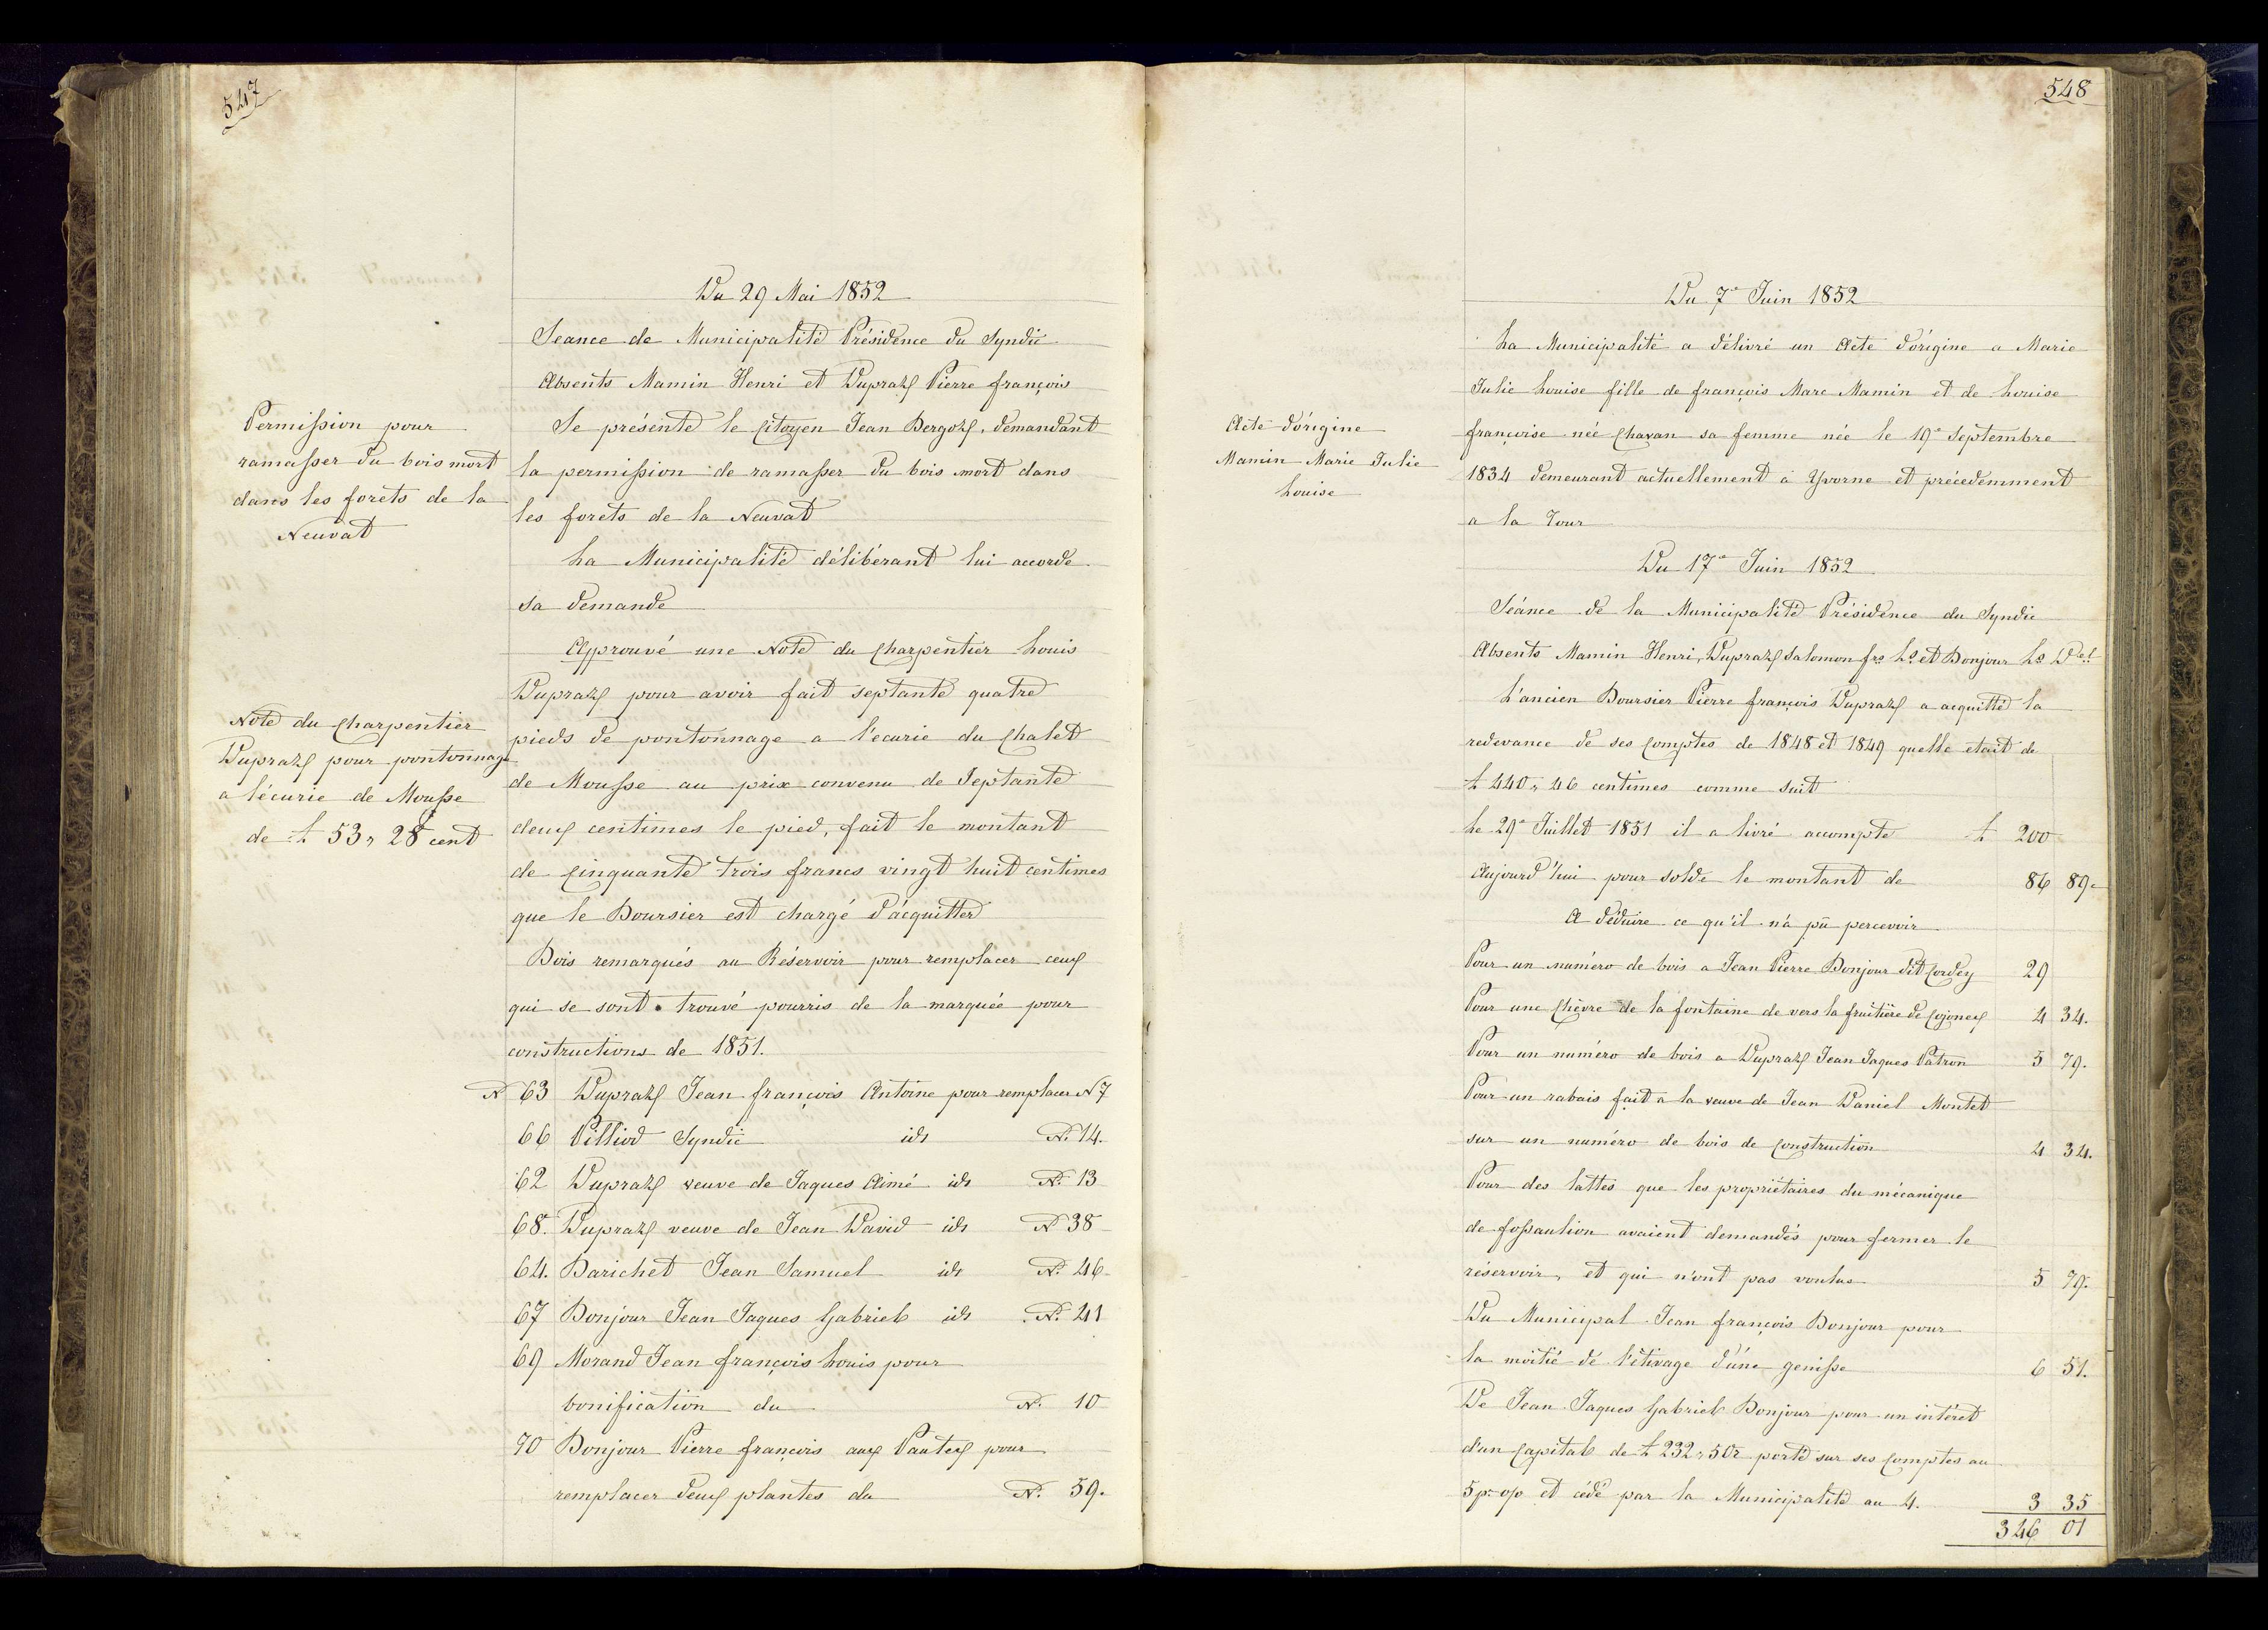 547
Du 29 Mai 1852
Seance de Municipalité Présidence du Syndic
Absents Mamin Henri et Dupraz Pierre françois
Permission pour
ramasser du bois mort
dans les forets de la
Neuvat
Se présente le Citoyen Jean Bergoz, demandant
la permission de ramasser du bois mort dans
les forets de la Neuvat
La Municipalité délibérant lui accorde
sa demande
Approuvé une Note du Charpentier Louis
Dupraz pour avoir fait septante quatre
Note du Charpentier
Dupraz pour pontonnage
a l'écurie de Mousse
de £ 53, 28 cent
pieds de pontonnage a l'ecurie du Chalet
de Mousse au prix convenu de Septante
deux centimes le pied, fait le montant
de Cinquante trois francs vingt huit centimes
que le Boursier est chargé d'acquitter
Bois remarqués au Réservoir pour remplacer ceux
qui se sont trouvé pourris de la marquée pour
constructions de 1851.
N 63 Dupraz Jean françois Antoine pour remplacer N 7
66 Pilliod Syndic id N. 14.
62 Dupraz veuve de Jaques Aimé id N. 13
68. Dupraz veuve de Jean David id N 38
64. Barichet Jean Samuel id N. 46
67 Bonjour Jean Jaques Gabriel id N. 41
69 Morand Jean françois Louis pour
bonification du N. 10
70 Bonjour Pierre françois aux Pautex pour
remplacer deux plantes du N. 59.
548
Du 7e Juin 1852
La Municipalité a délivré un Acte d'origine a Marie
Julie Louise fille de françois Marc Mamin et de Louise
Acte d'origine
Mamin Marie Julie
Louise
françoise née Chavan sa femme née le 19e Septembre
1834 demeurant actuellement à Yvorne et précédemment
a la Tour
Du 17e Juin 1852
Séance de la Municipalité Présidence du Syndic
Absents Mamin Henri, Dupraz Salomon frs Ls et Bonjour Ls Del
L'ancien Boursier Pierre françois Dupraz a acquitté la
redevance de ses Comptes de 1848 et 1849 quelle etait de
£ 440, 46 centimes comme suit
Le 29e Juillet 1851 il a livré accompte £ 200
Aujourd'hui pour solde le montant de 86 89
A déduire ce qu'il n'a pû percevoir
Pour un numéro de bois a Jean Pierre Bonjour dit Cordey 29
Pour une Chèvre de la fontaine de vers la fruitière de Cojonex 4 34.
Pour un numéro de bois a Dupraz Jean Jaques Patron 5 79.
Pour un rabais fait à la veuve de Jean Daniel Montet
sur un numéro de bois de Construction 4 34.
Pour des lattes que les propriétaires du mécanique
de fossaulion avaient demandés pour fermer le
réservoir, et qui n'ont pas voulus 5 79.
Du Municipal Jean françois Bonjour pour
la moitié de l'étivage d'une genisse 6 51.
De Jean Jaques Gabriel Bonjour pour un intéret
d'un Capital de £ 232, 50r porté sur ses Comptes au
5 pr o/o et cédé par la Municipalité au 4. 3 35
346 01